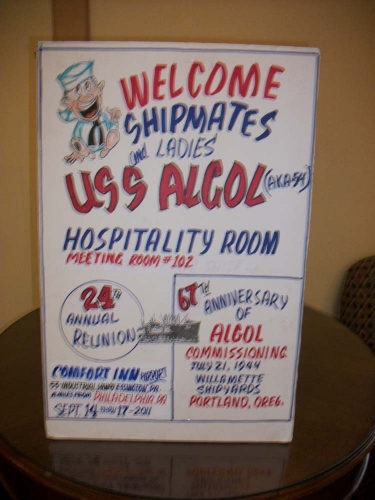 WELCOME
SHIPMATES
and LADIES
USS ALGOL (AKA-54)
HOSPITALITY ROOM
MEETING ROOM #102
24TH
ANNUAL
REUNION
COMFORT INN
PHILADELPHIA PA
SEPT 14 THRU 17-2011
67TH
ANNIVERSARY
OF
ALGOL
COMMISSIONING
JULY 21, 1944
WILLAMETTE
SHIPYARDS
PORTLAND, OREG.